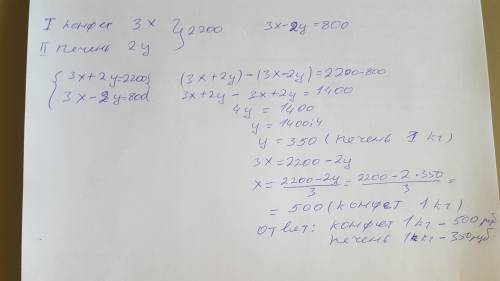 I конфет 3x } 2200 3x-2y=800
II печень 2y
{ 3x+2y=2200 (3x+2y)-(3x-2y)=2200-800
3x-2y=800 3x+2y-3x+2y=1400
4y=1400
y=1400:4
y=350 (печень 1 кг)
3x=2200-2y
x=2200-2y/3=2200-2·350/3=
=500 (конфет 1 кг)
Ответ: конфет 1кг-500 руб
печень 1кг-350 руб.